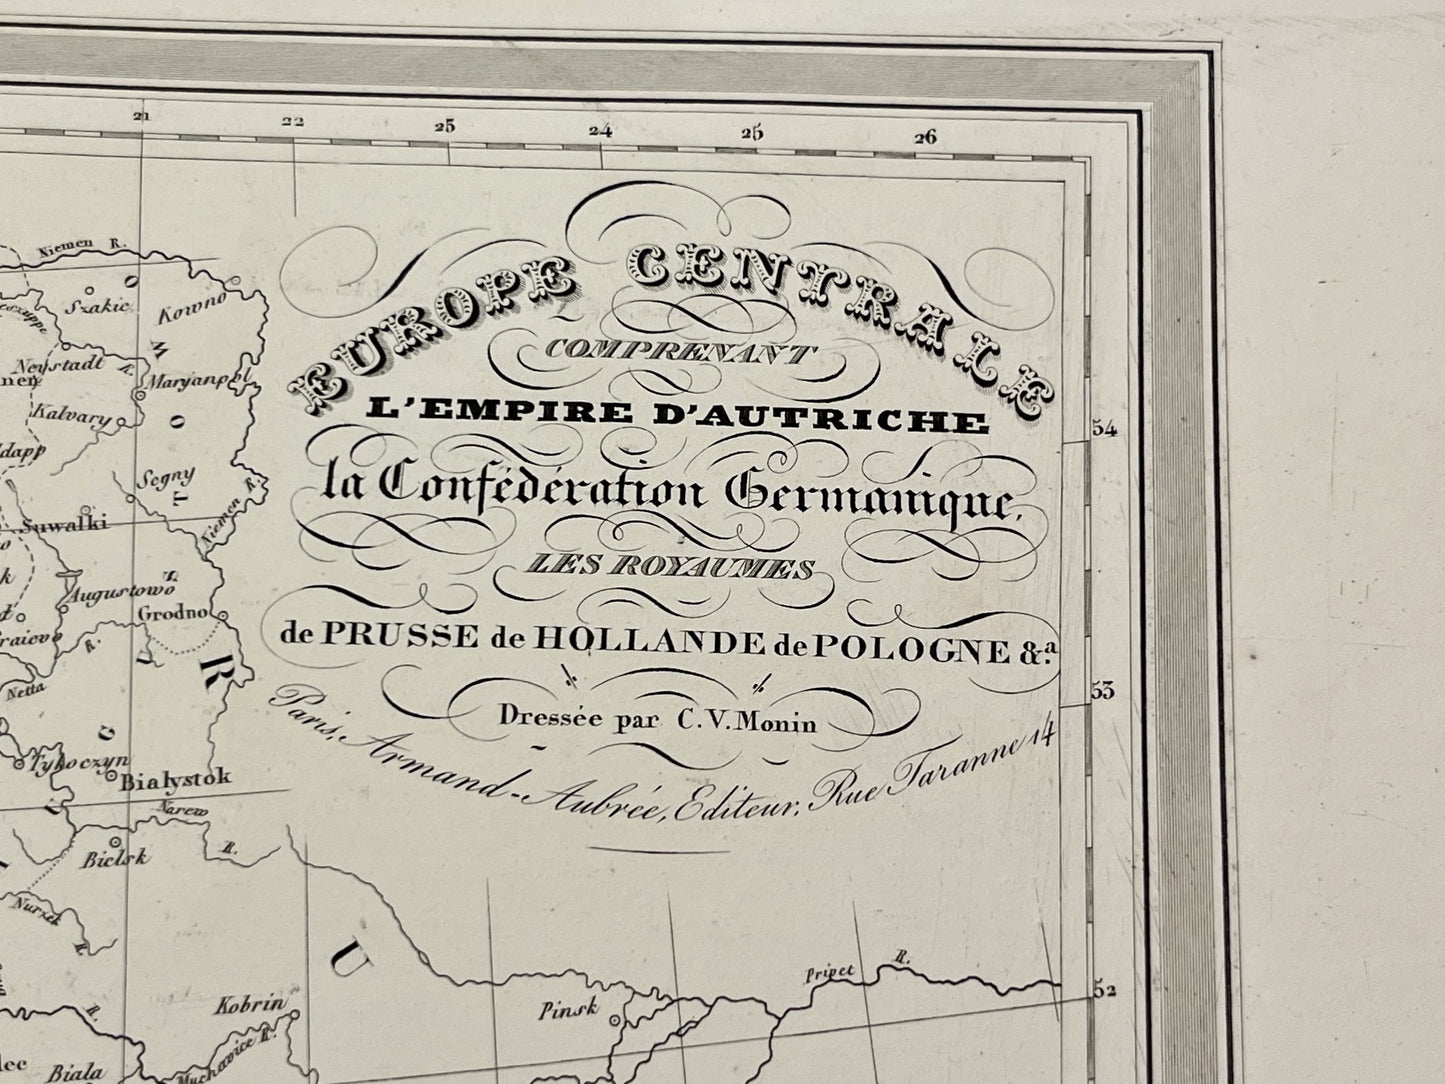 21 22 23 24 25 26
EUROPE CENTRALE
COMPRENANT
L'EMPIRE D'AUTRICHE
la Confédération Germanique,
LES ROYAUMES
de PRUSSE de HOLLANDE de POLOGNE &a.
Dressée par C.V. Monin
Paris, Armand-Aubrée, Editeur, Rue Taranne 14
54
53
52
Niemen R.
Szakic
Kowno
Neustadt R.
Maryanpol
Kalvary
Segny
Niemen R.
Suwalki
Augustowo
Grodno
R.
Netta
R
Tyhoczyn
Bialystok
Narew
R.
Bielsk
Nurzek
R.
U
Pripet R.
Pinsk
Kobrin
R.
Muchavice R.
Biala